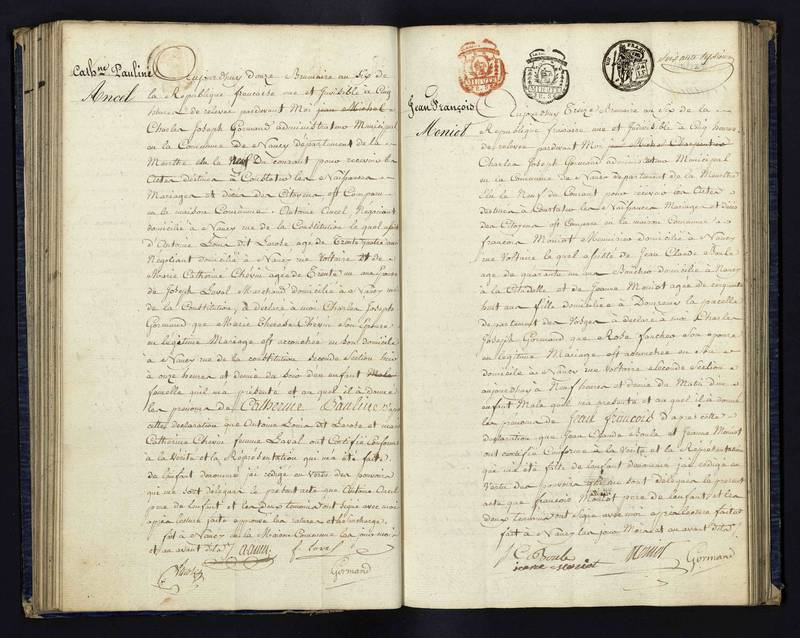 Cathne Pauline
Ancel
Aujourdhuy Douze Brumaire an Six de
la Republique francaise une et Indivisible à Cinq
heures de relevée pardevant Moi Jean Michel
Charles Joseph Gormand administrateur Municipal
en la Commune de Nancy département de la
Meurthe élu le Neuf Du courant pour recevoir les
Actes destinés à Constater les Naissances
Mariages et décès des Citoyens est Comparu
en la maison Commune Antoine Ancel Négociant
domicilié à Nancy rue de la Constitution lequel assisté
d'Antoine Louis agé de Trente
Négociant domicilié à Nancy rue Voltaire et de
Marie Catherine Chevin agée de Trente un ans Epouse
de Joseph Laval Marchand domicilié à Nancy rue
de la Constitution, a déclaré à moi Charles Joseph
Gormand que Marie Therese Chevin Son Epouse
en légitime Mariage est accouchée en Son domicile
à Nancy rue de la constitution seconde Section hier
à onze heures et demie du Soir d'un enfant Male
femelle qu'il m'a présenté et auquel il a donné
les prenoms de Catherine Pauline D'après
cette déclaration que Antoine Louis et Marie
Catherine Chevin femme Laval ont Certifié Conforme
à la Verité et la Représentation qui m'a été faite
de l'enfant denommé j'ai rédigé en Vertu des pouvoirs
qui me sont délégués le présent acte que Antoine Ancel
pere de l'enfant et les deux temoins ont Signé avec moi
après lecture faite approuvé les ratures et
fait à Nancy en la Maison Commune les jour mois
et an avant dits
f. Laval
Gormand
MINUTE
MINUTE
Jean François
Moniot
Aujourdhuy Treize Brumaire an Six de la
République francaise une et Indivisible à Cinq heures
de relevée pardevant Moi Jean Michel Charpentier
Charles Joseph Gormand administrateur Municipal
en la Commune de Nancy departement de la Meurthe
Elu le Neuf du Courant pour recevoir les Actes
destinés à Constater les Naissances Mariages et décès
des Citoyens est Comparu en la maison Commune
francois Moniot domicilié à Nancy
rue Voltaire lequel assisté de Jean Claude
age de quarante un ans domicilié à Nancy
à la Citadelle et de Jeanne Moniot agée de cinquante
huit ans fille domiciliée à Domremy la pucelle
departement des Vosges à déclaré à moi Charles
Joseph Gormand que Rose son épouse
en légitime Mariage est accouchée en Son
domicile à Nancy rue Voltaire seconde Section
aujourdhuy à Neuf heures et demie du Matin d'un
enfant Male qu'il m'a presenté et auquel il a donné
les prenoms de Jean francois d'après cette
declaration que Jean Claude et Jeanne Moniot
ont certifié Conforme à la Verité et la Représentation
qui m'a été faite de l'enfant denommé j'ai rédigé en
Vertu des pouvoirs qui me sont délégués le présent
acte que françois Moniot pere de l'enfant et les
deux temoins ont Signé avec moi après lecture faite
fait à Nancy les jour Mois et an avant dits
jeanne moniot
Moniot
Gormand